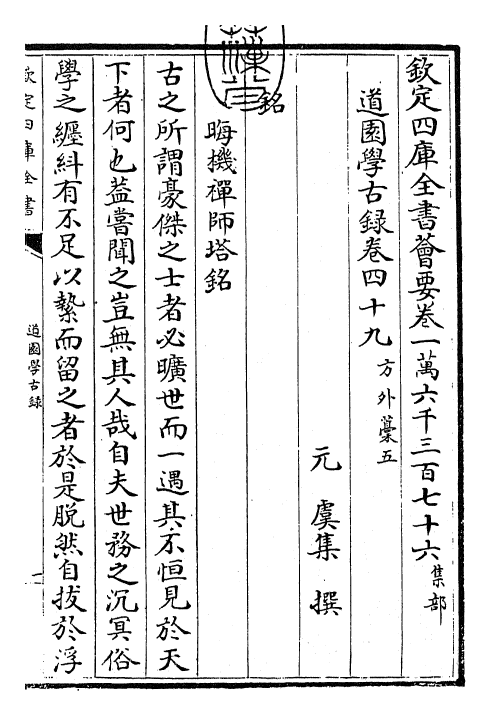 欽定四庫全書薈要卷一萬六千三百七十六集部
道園學古録卷四十九方外藁五
元 虞集 撰
銘
晦機禪師塔銘
古之所謂豪傑之士者必曠世而一遇其不恒見於天
下者何也葢嘗聞之豈無其人哉自夫世務之沉冥俗
學之纒糾有不足以縶而留之者於是脱然自拔於浮
欽定四庫全書
道園學古録